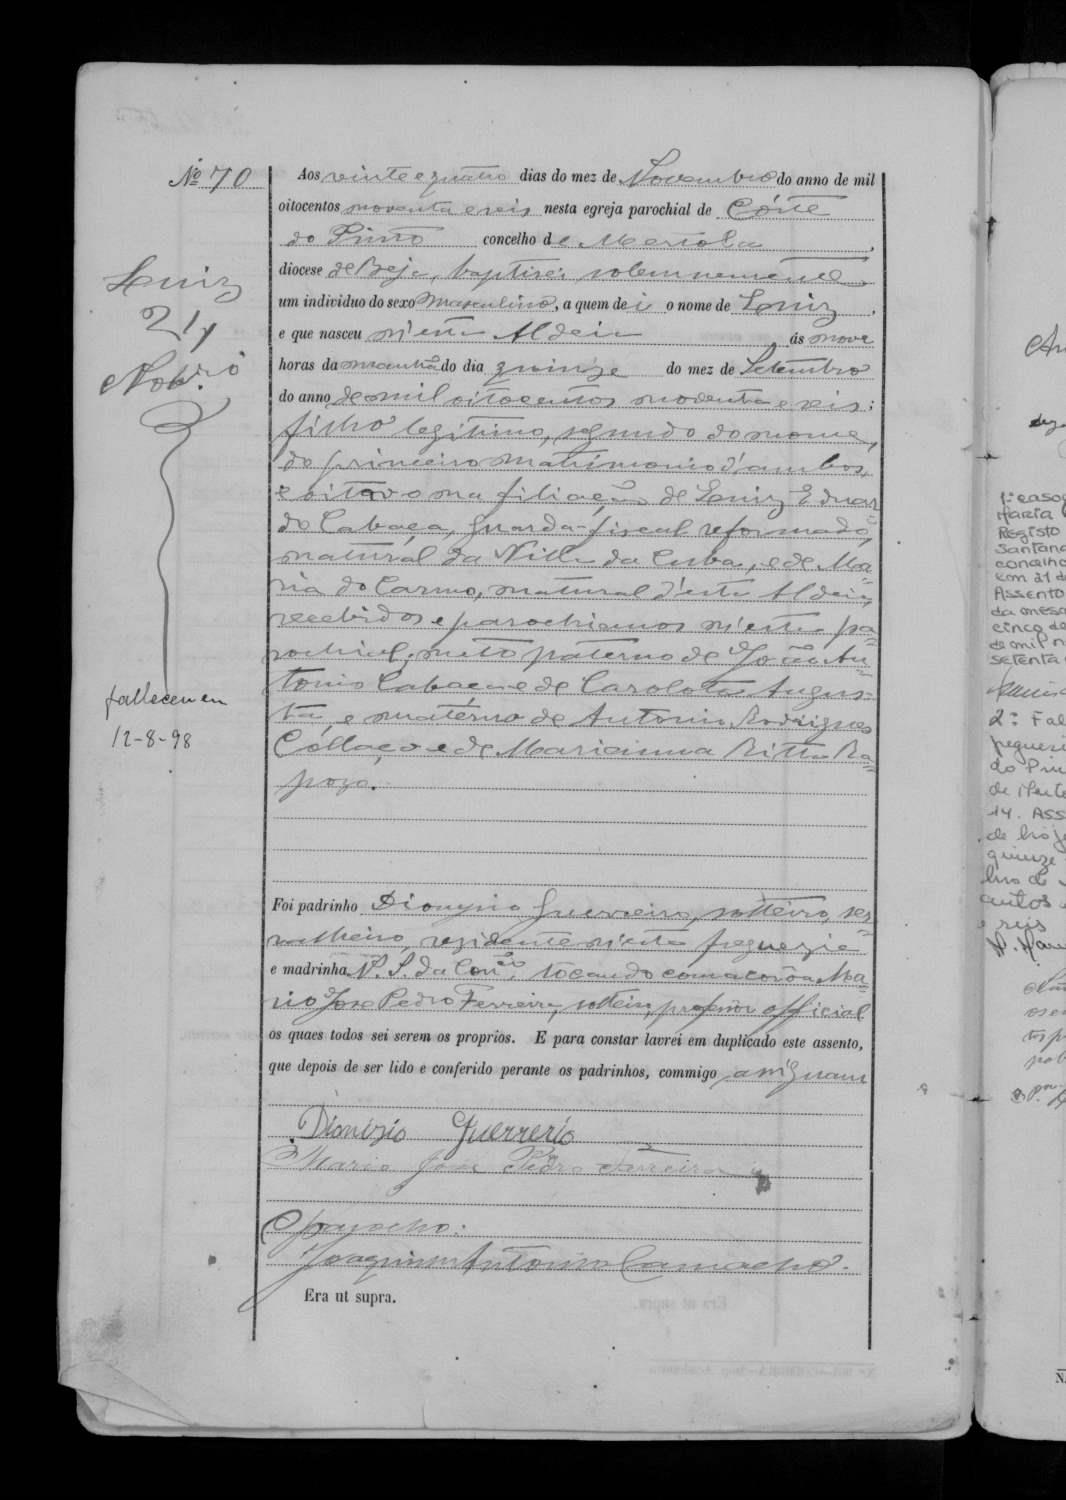 Nº 70
Luiz
24
Nobrº
falleceu em
12-8-98
Aos vinte e quatro dias do mez de Novembro do anno de mil
oitocentos noventa e seis nesta egreja parochial de Córte
do Pinto concelho de Mertola,
diocese de Beja, baptisei solemnemente
um individuo do sexo masculino, a quem dei o nome de Luiz,
e que nasceu n'esta Aldeia ás nove
horas da manhã do dia quinze do mez de Setembro
do anno de mil oitocentos noventa e seis;
filho legitimo, segundo do nome,
do primeiro matrimonio d'ambos,
e oitavo na filiação de Luiz Eduar=
do Cabaça, guarda-fiscal reformado,
natural da Villa da Cuba, e de Ma=
ria do Carmo, natural d'esta Aldeia,
recebidos e parochianos n'esta pa=
rochial; neto paterno de João An=
tonio Cabaça e de Carolota Augus=
ta, e materno de Antonio Rodrigues
Cóllaço e de Marianna Ritta Ra=
pozo.
Foi padrinho Dionysio Guerreiro, solteiro, ser=
ralheiro, residente n'esta freguezia
e madrinha N. S. da Conção, tocando com a corôa Ma=
rio José Pedro Ferreira, solteiro, professor official
os quaes todos sei serem os proprios. E para constar lavrei em duplicado este assento,
que depois de ser lido e conferido perante os padrinhos, commigo assignam
Dionizio Guerrerio
Mario José Pedro Ferreira
O parocho:
Joaquim Antonio Camacho.
Era ut supra.
1º casou
Maria
Registo
Santana
concelho
em 21 d
Assento
da mesa
cinco de
de mil n
setenta
2º Fal
do Pin
de Merto
14. Ass
de hoje
quinze
lho de
e seis